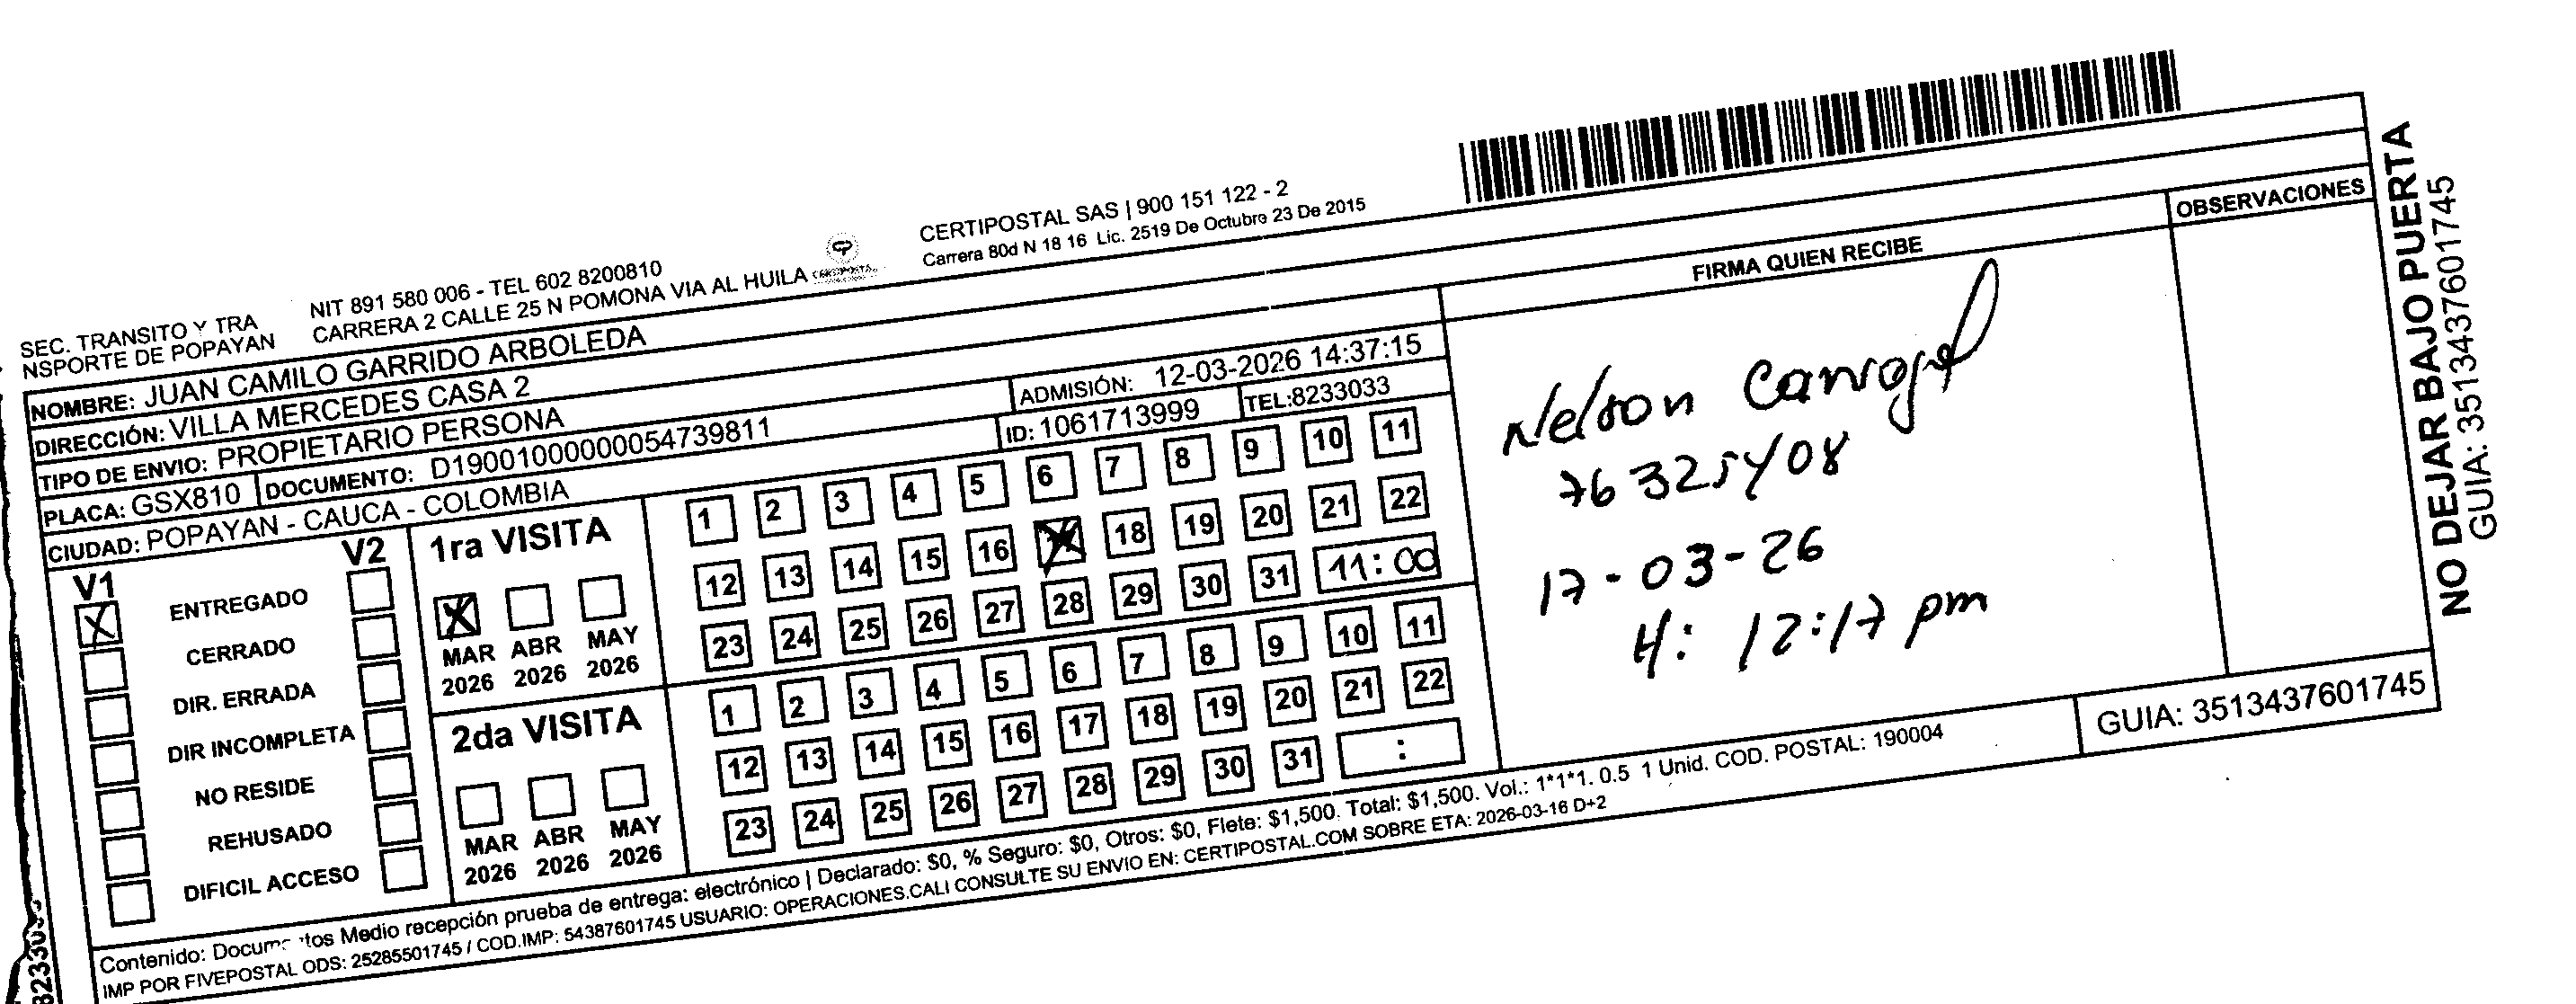 SEC. TRANSITO Y TRA
NSPORTE DE POPAYAN
NIT 891 580 006 - TEL 602 8200810
CARRERA 2 CALLE 25 N POMONA VIA AL HUILA
CERTIPOSTAL SAS | 900 151 122 - 2
Carrera 80d N 18 16 Lic. 2519 De Octubre 23 De 2015
NOMBRE: JUAN CAMILO GARRIDO ARBOLEDA
DIRECCIÓN: VILLA MERCEDES CASA 2
TIPO DE ENVIO: PROPIETARIO PERSONA
ADMISIÓN: 12-03-2026 14:37:15
PLACA: GSX810 DOCUMENTO: D19001000000054739811
ID: 1061713999 TEL:8233033
CIUDAD: POPAYAN - CAUCA - COLOMBIA
V1 V2
ENTREGADO
CERRADO
DIR. ERRADA
DIR INCOMPLETA
NO RESIDE
REHUSADO
DIFICIL ACCESO
1ra VISITA
MAR ABR MAY
2026 2026 2026
1 2 3 4 5 6 7 8 9 10 11
12 13 14 15 16 18 19 20 21 22
23 24 25 26 27 28 29 30 31 11:00
2da VISITA
MAR ABR MAY
2026 2026 2026
1 2 3 4 5 6 7 8 9 10 11
12 13 14 15 16 17 18 19 20 21 22
23 24 25 26 27 28 29 30 31 :
FIRMA QUIEN RECIBE
Nelson
76325408
17-03-26
H: 12:17 pm
OBSERVACIONES
GUIA: 3513437601745
Contenido: Documentos Medio recepción prueba de entrega: electrónico | Declarado: $0, % Seguro: $0, Otros: $0, Flete: $1,500. Total: $1,500. Vol.: 1*1*1. 0.5 1 Unid. COD. POSTAL: 190004
IMP POR FIVEPOSTAL ODS: 25285501745 / COD.IMP: 54387601745 USUARIO: OPERACIONES.CALI CONSULTE SU ENVIO EN: CERTIPOSTAL.COM SOBRE ETA: 2026-03-16 D+2
NO DEJAR BAJO PUERTA
GUIA: 3513437601745